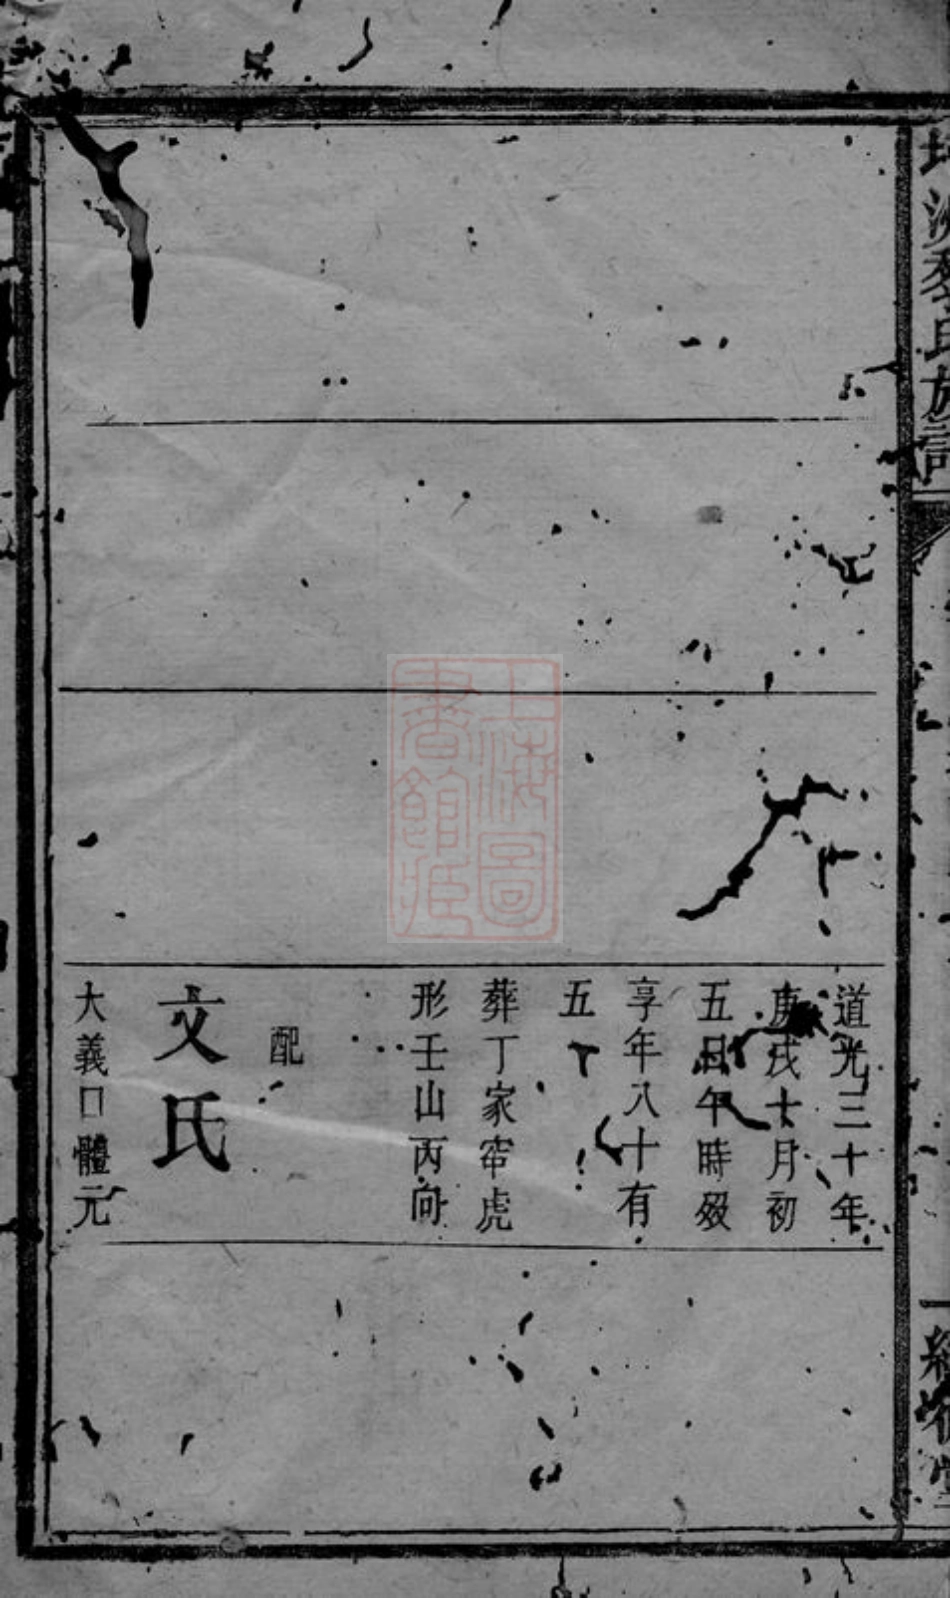 氏族譜
道光三十年
庚戌十月初
五日午時歿
享年八十有
五
葬丁家窂虎
形壬山丙向
配
文氏
大義口體元
上海圖
書館藏